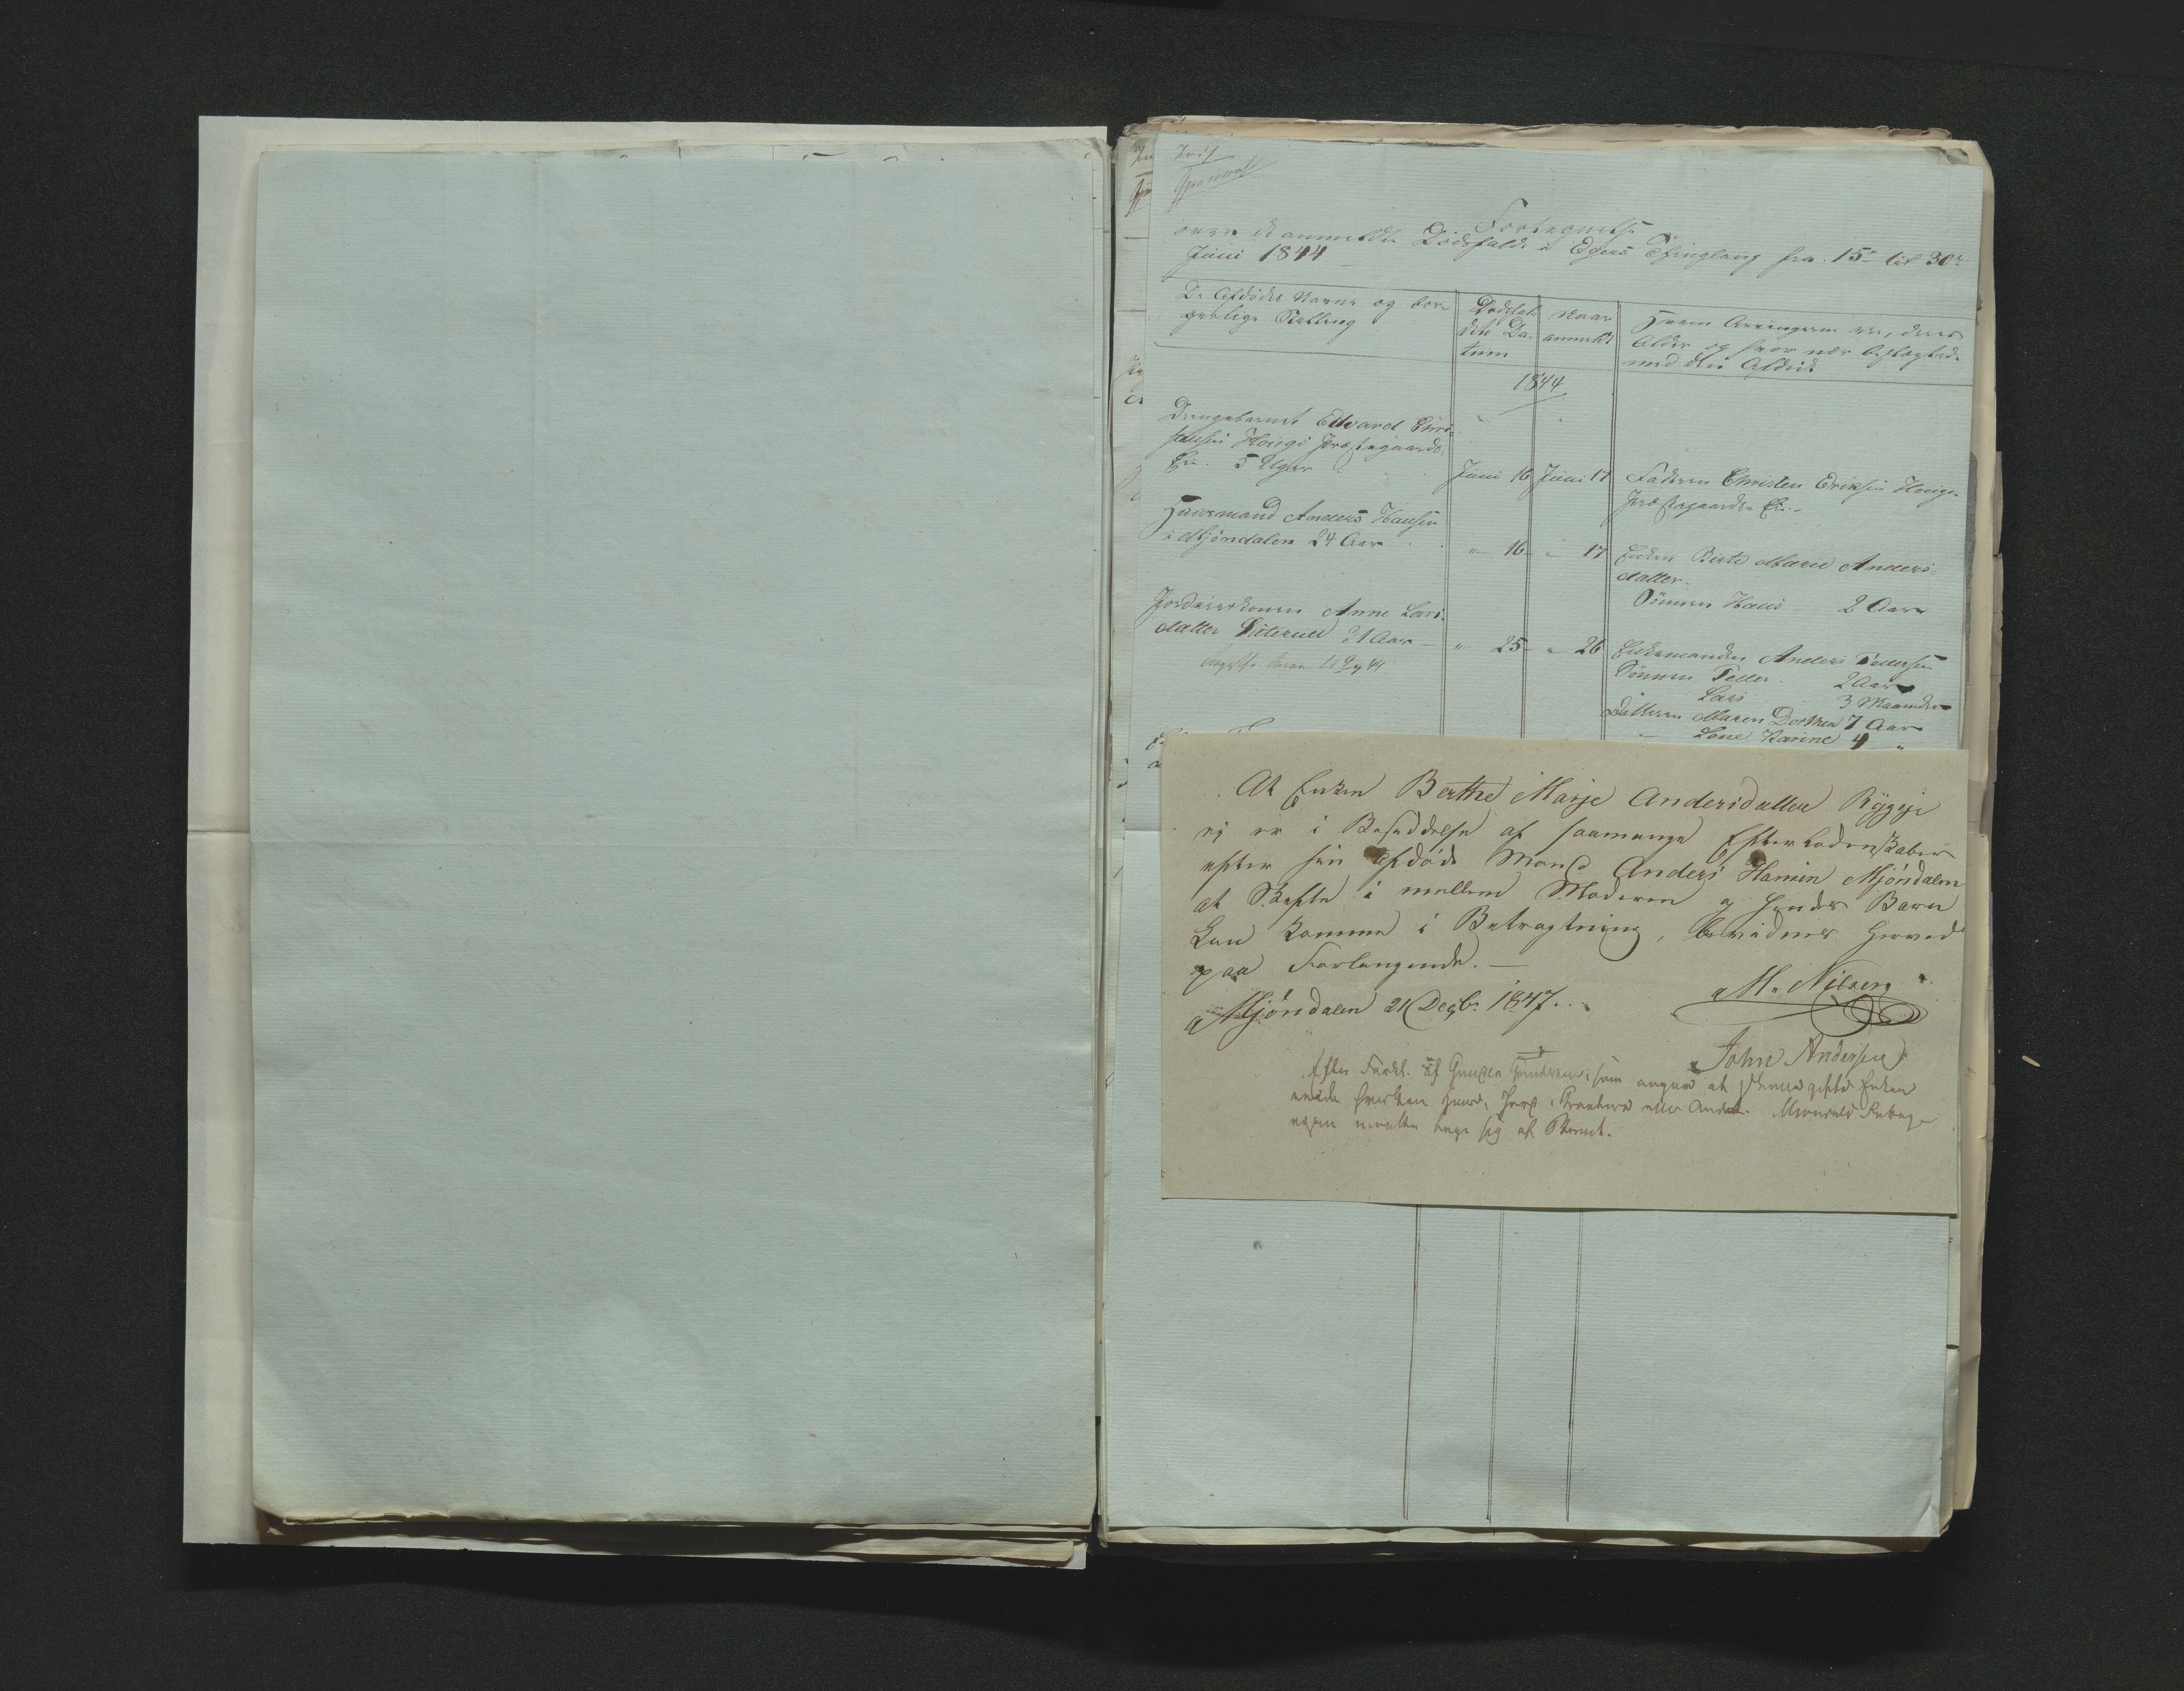 Fortegnelse
over de anmeldte Dödsfald i Egers Thinglaug fra 15de til 30te
Juni 1844
De Afdödes Navne og bor-
gerlige Stilling
Dödsfal-
dets Da-
tum
Naar
anmeldt
Hvem Arvingerne ere, deres
Alder og hvor nær beslægtede
med den Afdöde
1844
Drengebarnet Edvard Chri-
stensen Hougs Præstegaards
Eie. 5 Uger
Juni 16 Juni 17
Faderen Christen Eriksen Hougs
Præstegaards Eie.
Huusmand Anders Hansen
i Mjöndalen 24 Aar
" 16 " 17
Enken Berte Marie Anders-
datter.
Sönnen Hans 2 Aar
Anne Lars-
datter 31 Aar
" 25 " 26
Enkemanden Anders Pedersen
Sönnen Peder 2 Aar
Lars 3 Maaneder
Datteren Maren Dorthea 7 Aar
Lene Karine 4 "
At Enken Berthe Marje Andersdatter Ryggje
ej er i Besiddelse af saamange Efterladenskaber
efter sin afdöde Mand Anders Hansen Mjöndalen
at Skifte i mellem Moderen og hendes Barn
kan komme i Betragtning, bevidnes herved
paa Forlangende. —
Mjöndalen 21 Decbr. 1847.
M. Nilsen
John Andersen
Efter Forkl. af som angav at Enken
eiede hverken eller Andet.
sig af Barnet.